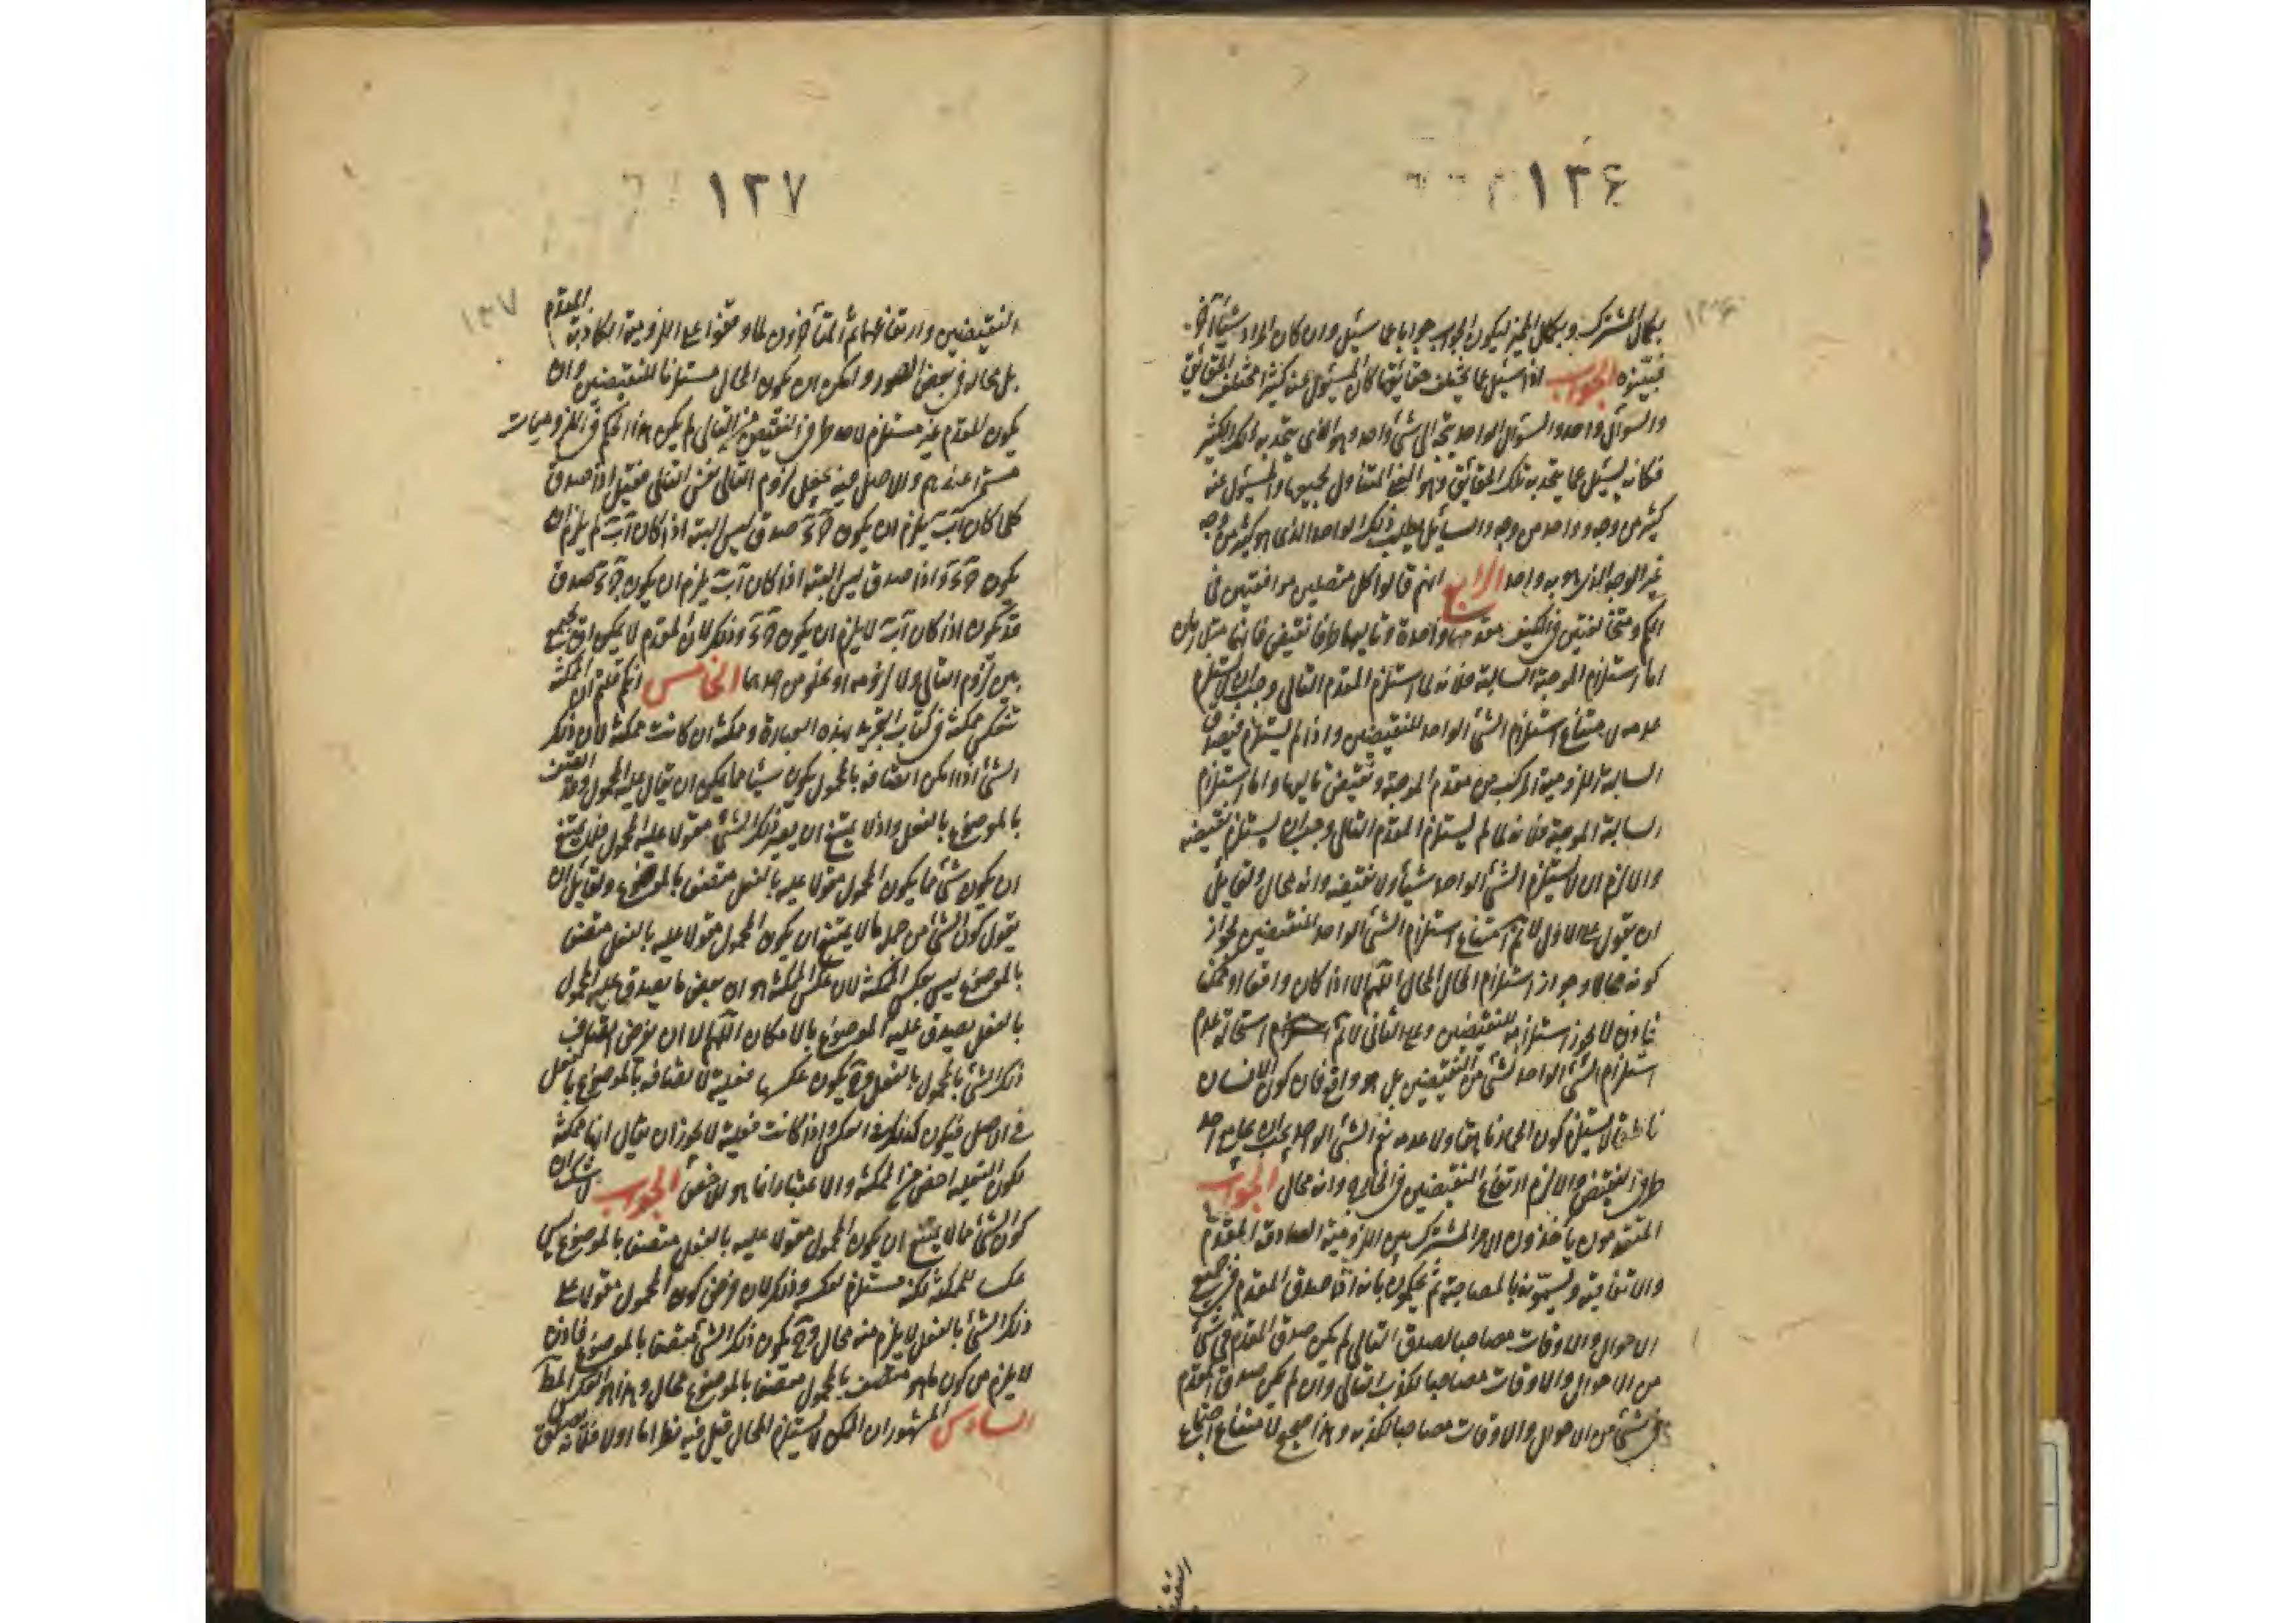 ١٣۶
١٣۶
بكمال المشترك وبكمال المميز ليكون الجواب جوابا عما سئل وان كان المراد شيئا آخر
فبينوه الجواب اذا سئل عما يختلف حقائقها كان المسئول عنه كثيرا مختلف الحقائق
والسؤال واحد والسؤال الواحد يتجه الى شئ واحد وهو الذى يتحد به ذلك الكثير
فكانه يسئل عما يتحد به تلك الحقائق وهو المتناول لجميعها والمسئول عنه
كثير من وجه وواحد من وجه والسائل يطلب ذلك الواحد الذى هو كثير من وجه
غير الوجه الذى هو به واحد الرابع انهم قالوا كل متصلتين موافقتين فى
الكم ومتخالفتين فى الكيف مقدمهما واحدة وتاليهما طرفا نقيض فانهما متلازمان
اما استلزام الموجبة السالبة فلانه لما استلزم المقدم التالى وجب ان لا يستلزم
عدمه لامتناع استلزام الشئ الواحد للنقيضين واذا لم يستلزم فيصدق
السالبة اللزومية المركب من مقدم الموجبة ونقيض تاليها واما استلزام
السالبة الموجبة فلانه لما لم يستلزم المقدم التالى وجب ان يستلزم نقيضه
والا لزم ان لا يستلزم الشئ الواحد شيئا ولا نقيضه وانه محال ولقائل
ان يقول على الاول لا نم امتناع استلزام الشئ الواحد للنقيضين لجواز
كونه محالا وجواز استلزام المحال المحال اللهم الا اذا كان واقعا او ممكنا
فاذن لا يجوز استلزامه للنقيضين وعلى الثانى لا نم استحالة عدم
استلزام الشئ الواحد لشئ من النقيضين بل هو واقع فان كون الانسان
ناطقا لا يستلزم كون الحمار ناهقا ولا عدمه نعم الشئ الواحد يجب ان يجامع احد
طرفى النقيض والا لزم ارتفاع النقيضين فى الخارج وانه محال الجواب
المتقدمون ياخذون الامر المشترك بين اللزومية الصادقة المقدم
والاتفاقية ويسمونه بالمصاحبة ثم يحكمون بانه اذا صدق المقدم فى جميع
الاحوال والاوقات مصاحبا لصدق التالى لم يكن صدق المقدم فى شئ
من الاحوال والاوقات مصاحبا لكذب التالى وان لم يكن صدق المقدم
فى شئ من الاحوال والاوقات مصاحبا لكذبه وهذا صحيح لامتناع اجتماع
١٣٧
١٣٧
النقيضين وارتفاعهما ثم المتأخرون لما وقفوا على اللزومية الكاذبة المقدم
بل محاله فى بعض الصور وامكن ان يكون المحال مستلزما للنقيضين وان
يكون المقدم غير مستلزم لاحد طرفى النقيض من التالى لم يكن هذا الحكم فى اللزوميات
مستمرا عندهم والاصل فيه بجعل لزوم التالى نفس التالى فقيل اذا صدق
كلما كان اب يلزم ان يكون جد صدق ليس البتة اذا كان اب لم يلزم ان
يكون جد واذا صدق ليس البتة اذا كان اب يلزم ان يكون جد صدق
قد يكون اذا كان اب لا يلزم ان يكون جد وذلك لان المقدم لا يمكن ان يجمع
بين لزوم التالى ولا لزومه او يخلو من احدهما الخامس انكم قلتم ان الممكنة
تنعكس ممكنة فى كتاب التجريد بهذه العبارة وممكنة ان كانت ممكنة لان ذلك
الشئ اذا امكن اتصافه بالمحمول يكون شيئا مما يمكن ان يقال عليه المحمول وقد اتصف
بالموضوع بالفعل واذ لا يمتنع ان يصير ذلك الشئ مقولا عليه المحمول فلا يمتنع
ان يكون شئ مما يكون المحمول مقولا عليه بالفعل متصفا بالموضوع ولقائل ان
يقول كون الشئ من جملة ما لا يمتنع ان يكون المحمول مقولا عليه بالفعل متصفا
بالموضوع ليس بعكس الممكنة لان عكس الممكنة هو ان بعض ما يصدق عليه المحمول
بالفعل يصدق عليه الموضوع بالامكان اللهم الا ان يفرض اتصاف
ذلك الشئ بالمحمول بالفعل وح يكون عكسها فعلية لاتصافه بالموضوع بالفعل
فى الاصل فيكون كذلك فى العكس واذا كانت فعلية لا يجوز ان يقال انها ممكنة
لكون الفعلية اخص من الممكنة والاعتبار انما هو للاخص الجواب لا شك ان
كون الشئ مما لا يمتنع ان يكون المحمول مقولا عليه بالفعل متصفا بالموضوع ليس
عكسا للممكنة لكنه مستلزم لعكسه وذلك لان فرض كون المحمول مقولا على
ذلك الشئ بالفعل لا يلزم منه محال وح يكون ذلك الشئ متصفا بالموضوع فاذن
لا يلزم من كون ما هو متصف بالمحمول متصفا بالموضوع محال وهذا هو العكس المط
السادس المشهور ان الممكن لا يستلزم المحال قيل فيه نظر اما اولا فلانه يصدق